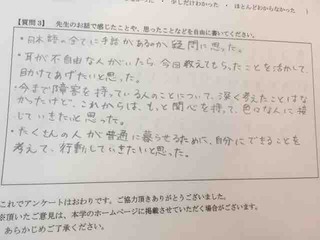 少しだけわかった　(　ほとんどわからなかった
【質問３】　先生のお話で感じたことや、思ったことなどを自由に書いてください。
・日本語の全てに手話があるのか疑問に思った。
・耳が不自由な人がいたら、今回教えてもらったことを活かして、
助けてあげたいと思った。
・今まで障害を持っている人のことについて、深く考えたことはな
かったけど、これからは、もっと関心を持って、色々な人に接
していきたいと思った。
・たくさんの人が普通に暮らせるために、自分にできることを
考えて、行動していきたいと思った。
これでアンケートはおわりです。ご協力頂きありがとうございました。
※頂いたご意見は、本学のホームページに掲載させていただく場合がございます。
あらかじめご了承ください。